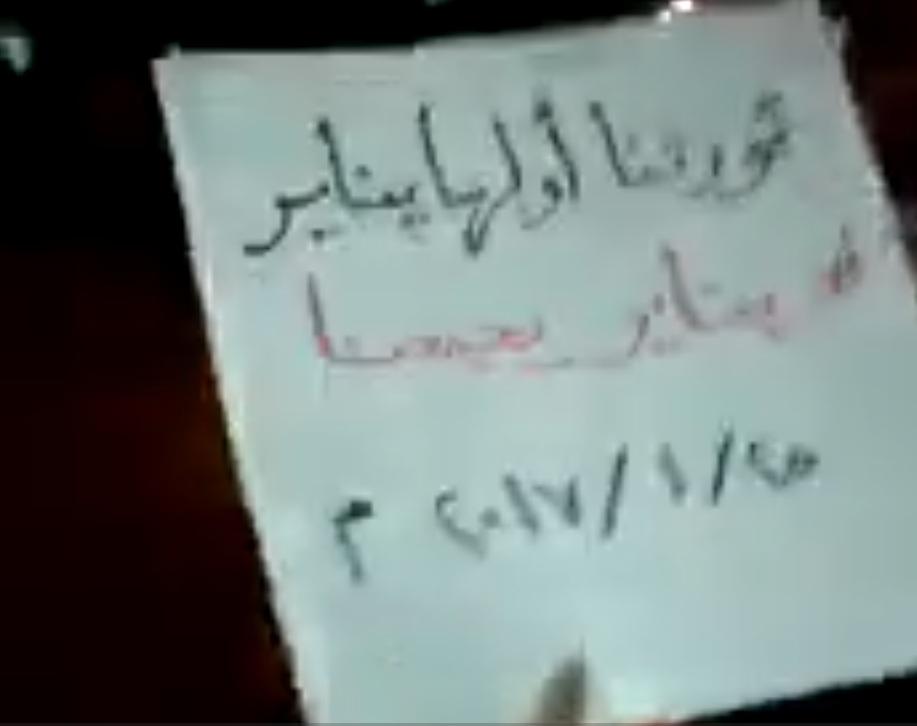 ثورتنا أولها يناير
# يناير يجمعنا
٢٥/١/٢٠١٧ م